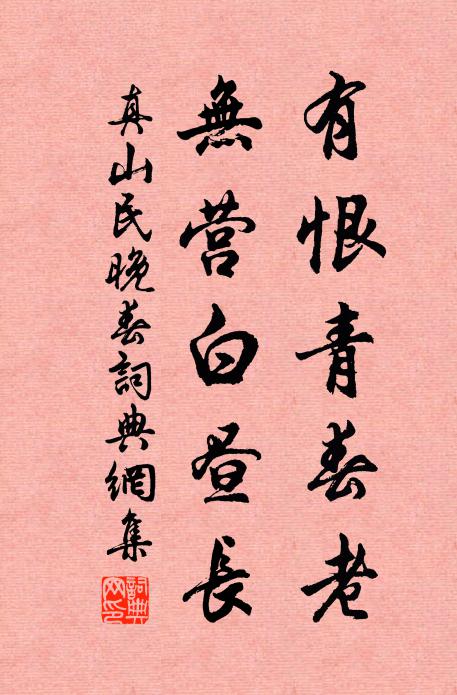 有恨青春老
無营白昼長
真山民晚春詞典網集
詞典網印